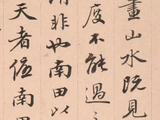 畫山水既見
度不能過之
謂非也南田以
天者伍南田